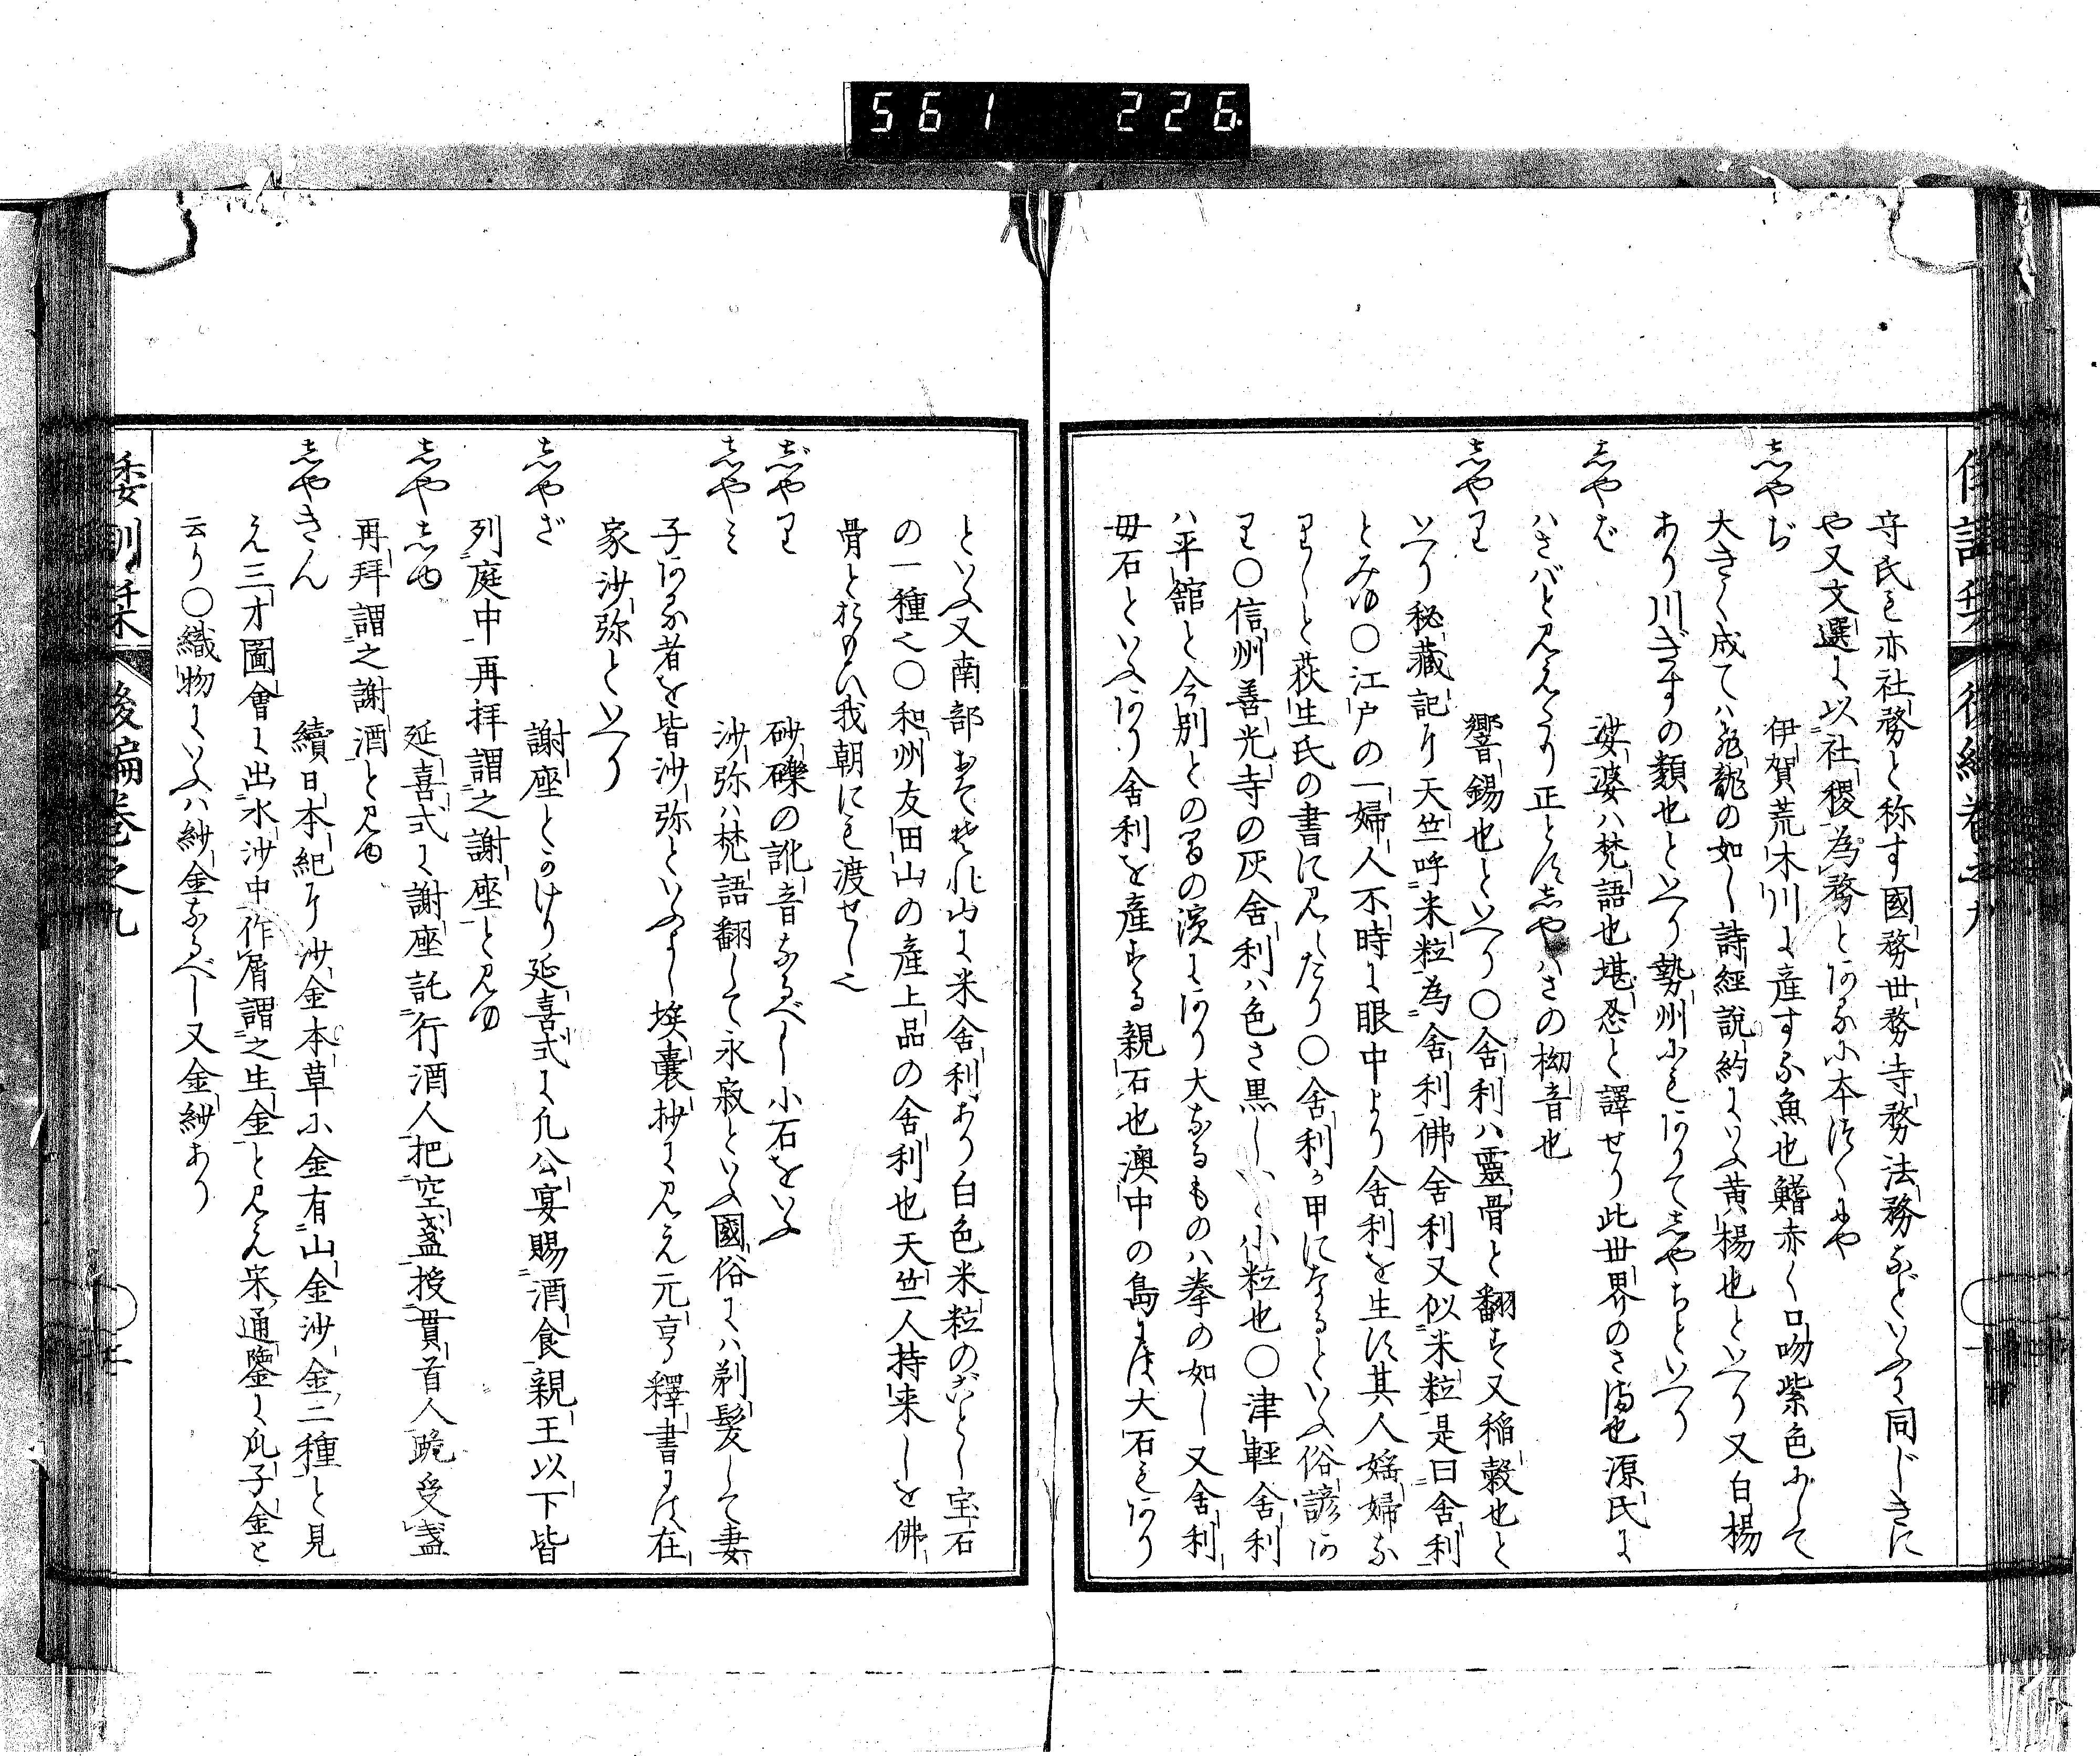 561 226
守氏も亦社務と称す國務世務寺務法務などいふに同じきに
や又文選に以社稷為務とあるに本づくにや
志やぢ 伊賀荒木川に産する魚也鰭赤く口吻紫色にして
大きく成てハ飛龍の如し詩經説約にいふ黄楊也といへり又白楊
あり川ぎすの類也といへり勢州にもありて志やちといへり
志やば 娑婆ハ梵語也堪忍と譯せり此世界のさま也源氏に
ハさバと見えたり正とハ志やハさの拗音也
志やり 響錫也といへり〇舎利ハ靈骨と翻す又稲穀也と
いへり秘藏記り天竺呼米粒為舎利佛舎利又似米粒是曰舎利
とみゆ〇江戸の一婦人不時に眼中より舎利を生ず其人婬婦な
りしと荻生氏の書に見したり〇舎利が甲になるといふ俗諺あ
り〇信州善光寺の灰舎利ハ色さ黒し小粒也〇津軽舎利
ハ平舘と今別との間の濱にあり大なるものハ拳の如し又舎利
毋石といふあり舎利を産する親石也澳中の島には大石もあり
といふ又南部おそれ山に米舎利あり白色米粒のごとし宝石
の一種也〇和州友田山の産上品の舎利也天竺人持来しを佛
骨とおもひ我朝にも渡せし也
じやり 砂礫の訛音なるべし小石をいふ
志やミ 沙弥ハ梵語翻して永寂といふ國俗にハ剃髪して妻
子ある者を皆沙弥といふよし埃嚢抄に見えん元亨釋書には在
家沙弥といへり
志やざ 謝座とかけり延喜式に凡公宴賜酒食親王以下皆
列庭中再拝謂之謝座と見ゆ
志や志ゆ 延喜式に謝座訖行酒人把空盞授貫首人跪受盞
再拜謂之謝酒と見ゆ
志やきん 續日本紀り沙金本草に金有山金沙金二種と見
え三才圖會に出水沙中作屑謂之生金と見え宋通鑒に瓜子金と
云り〇織物にいふハ紗金なるべし又金紗あり
倭訓栞 後編巻之九